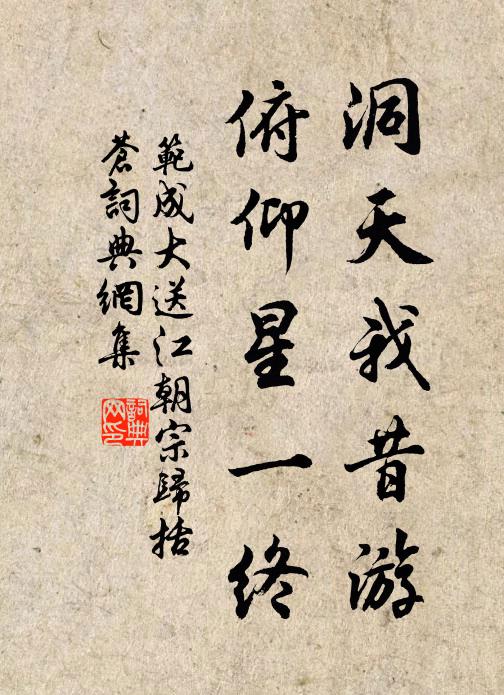 洞天我昔游
俯仰星一终
範成大送江朝宗歸括
蒼詞典網集
詞典网印